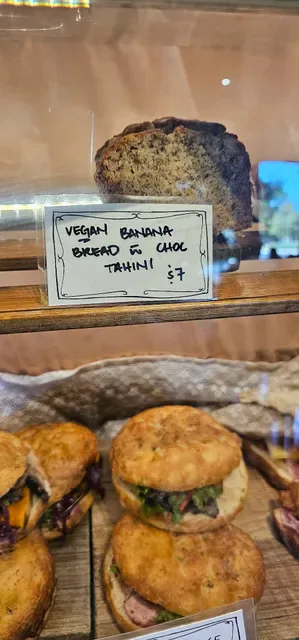 VEGAN BANANA
BREAD w̄ CHOC
TAHINI $7